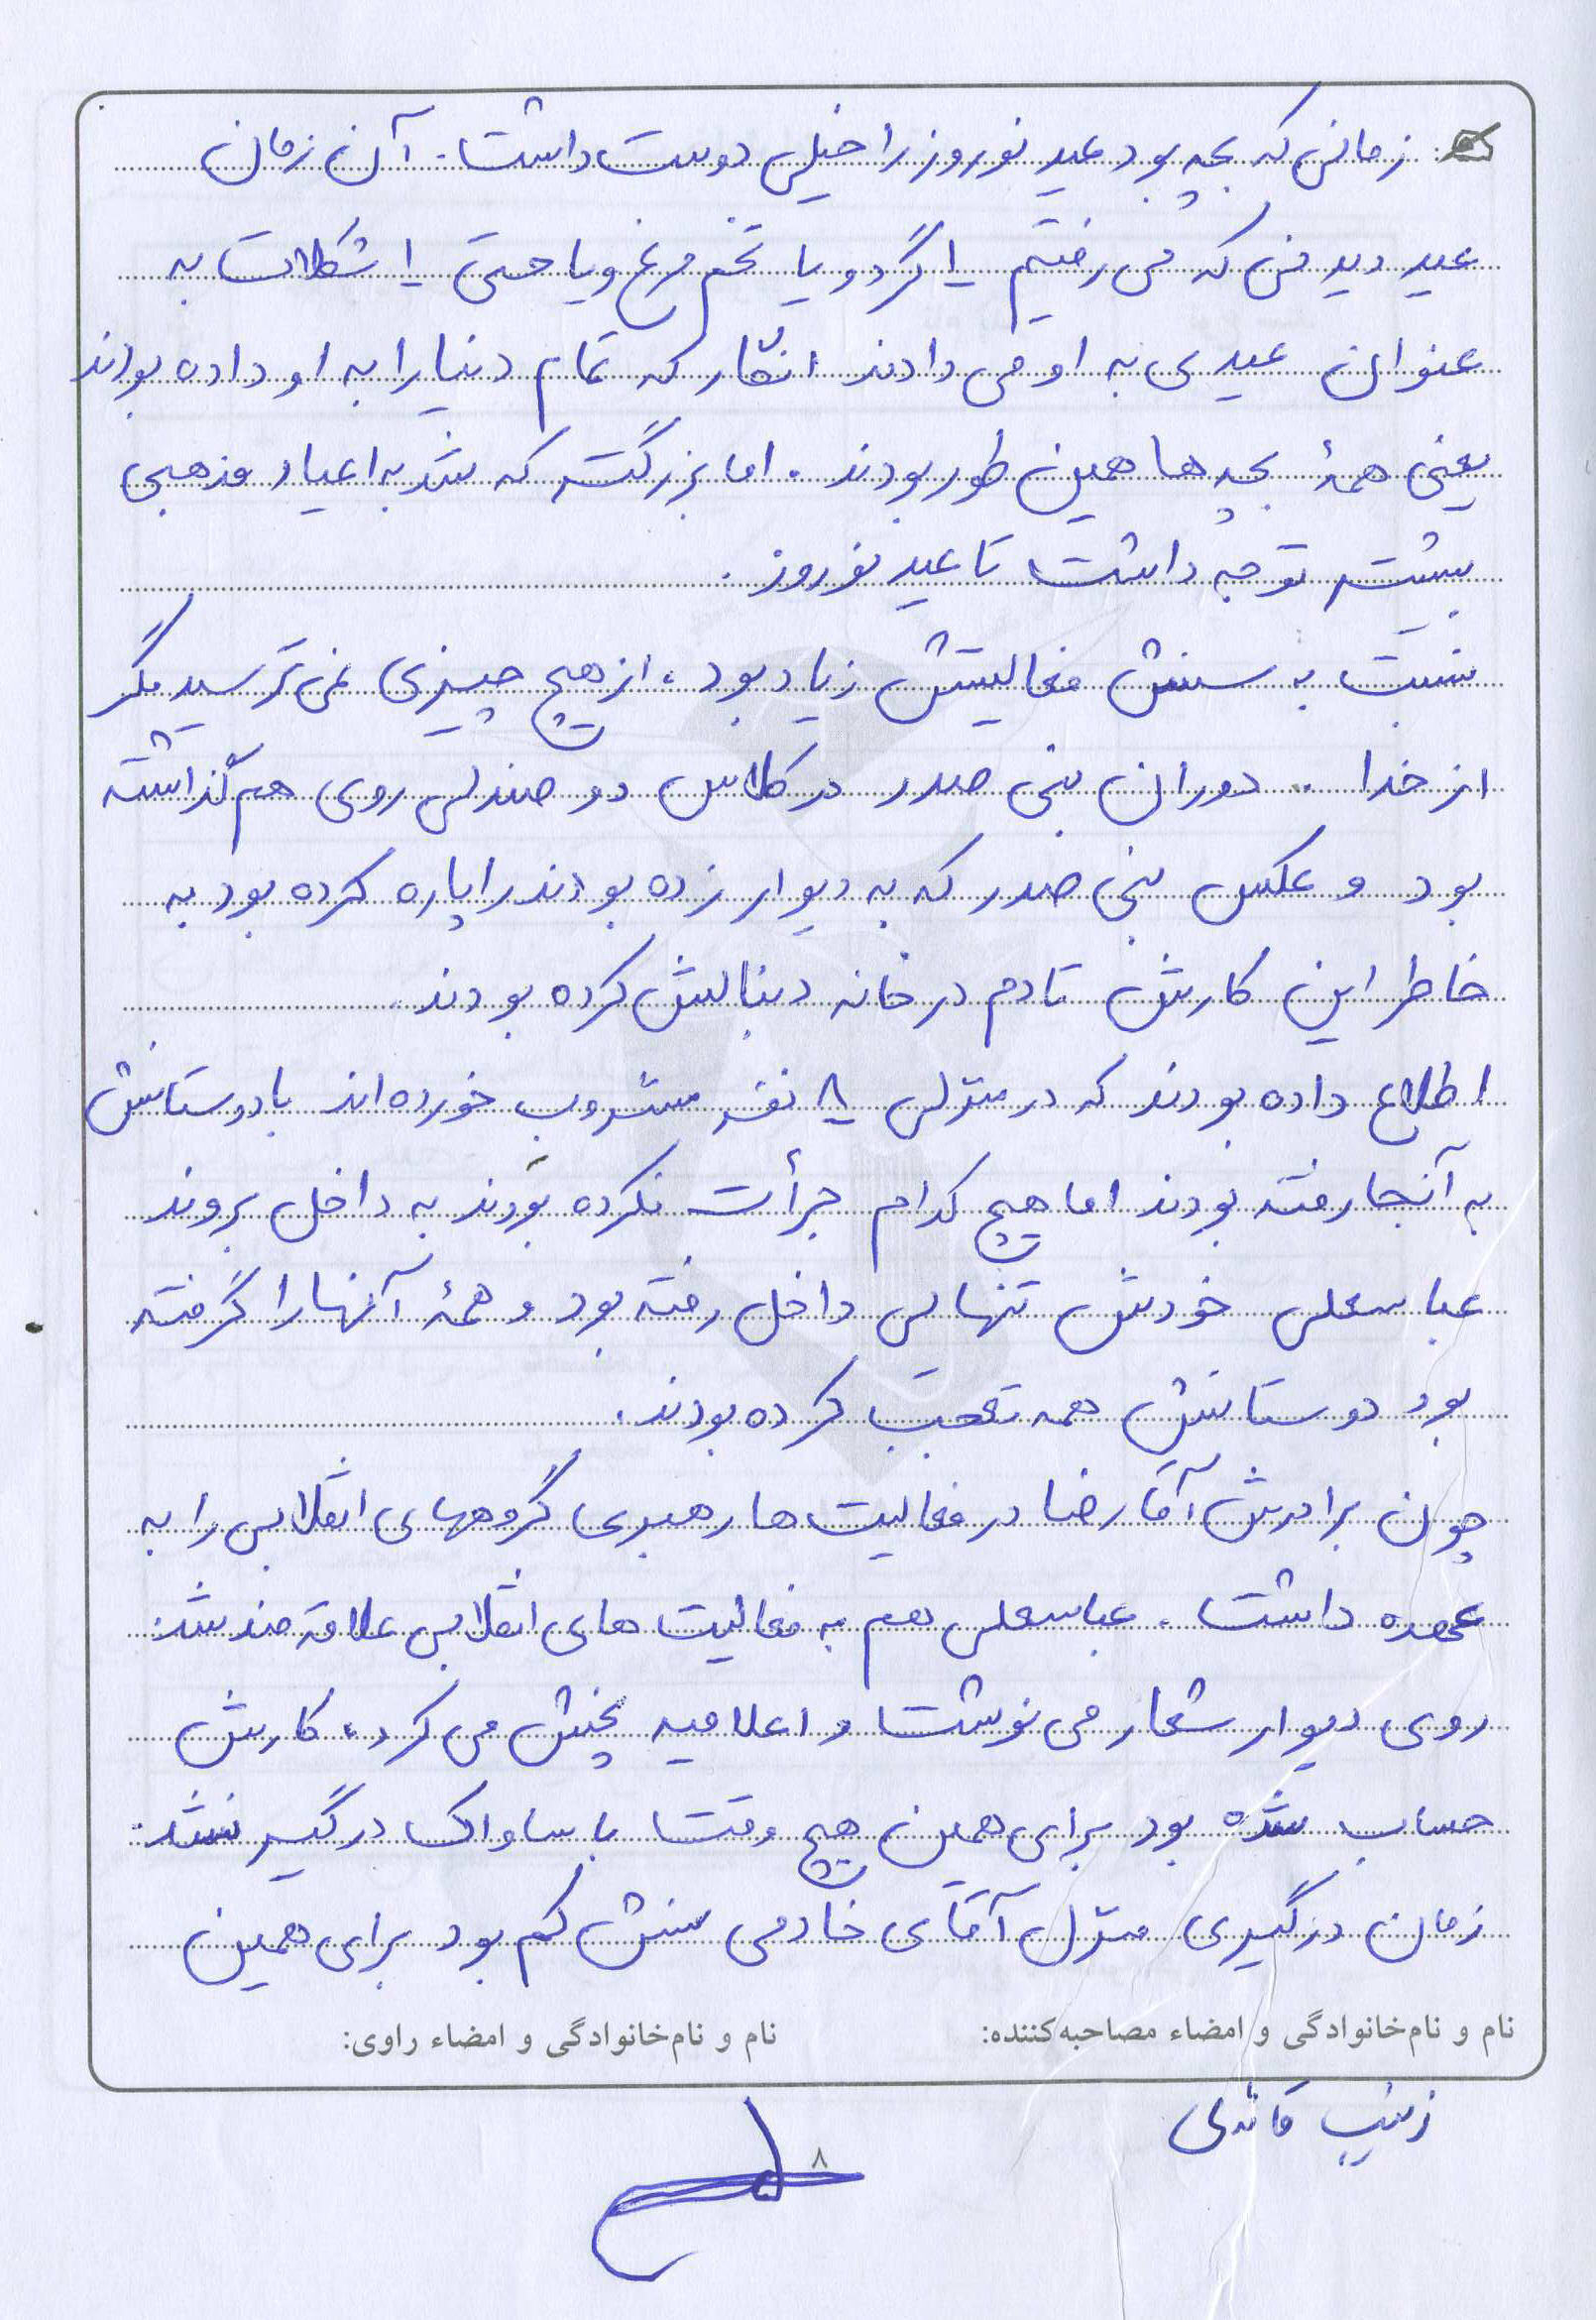 زمانی که بچه بود عید نوروز را خیلی دوست داشت. آن زمان
عید دیدنی که می رفتیم ۱ گردو یا تخم مرغ و یا حتی ۱ شکلات به
عنوان عیدی به او می دادند انگار که تمام دنیا را به او داده بودند
یعنی همۀ بچه ها همین طور بودند. اما بزرگتر که شد به اعیاد مذهبی
بیشتر توجه داشت تا عید نوروز.
نسبت به سنش فعالیتش زیاد بود، از هیچ چیزی نمی ترسید مگر
از خدا .. دوران بنی صدر در کلاس دو صندلی روی هم گذاشته
بود و عکس بنی صدر که به دیوار زده بودند را پاره کرده بود به
خاطر این کارش تا دم در خانه دنبالش کرده بودند.
اطلاع داده بودند که در منزلی ۸ نفر مشروب خورده اند با دوستانش
به آنجا رفته بودند اما هیچ کدام جرأت نکرده بودند به داخل بروند
عباسعلی خودش تنهایی داخل رفته بود و همۀ آنها را گرفته
بود دوستانش همه تعجب کرده بودند.
چون برادرش آقا رضا در فعالیت ها رهبری گروههای انقلابی را به
عهده داشت. عباسعلی هم به فعالیت های انقلابی علاقه مند شد.
روی دیوار شعار می نوشت و اعلامیه پخش می کرد، کارش
حساب شده بود برای همین هیچ وقت با ساواک درگیر نشد.
زمان درگیری منزل آقای خادمی سنش کم بود برای همین
نام و نام‌خانوادگی و امضاء مصاحبه‌کننده: نام و نام‌خانوادگی و امضاء راوی:
زینب
۸